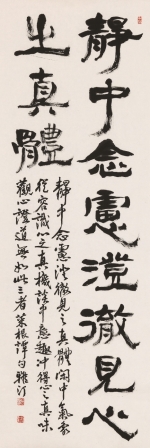 靜中念慮澄徹見心
之真體
靜中念慮澄徹見心之真體閒中氣象
從容識心之真機淡中意趣沖得心之真味
觀心證道無如此三者菜根譚句